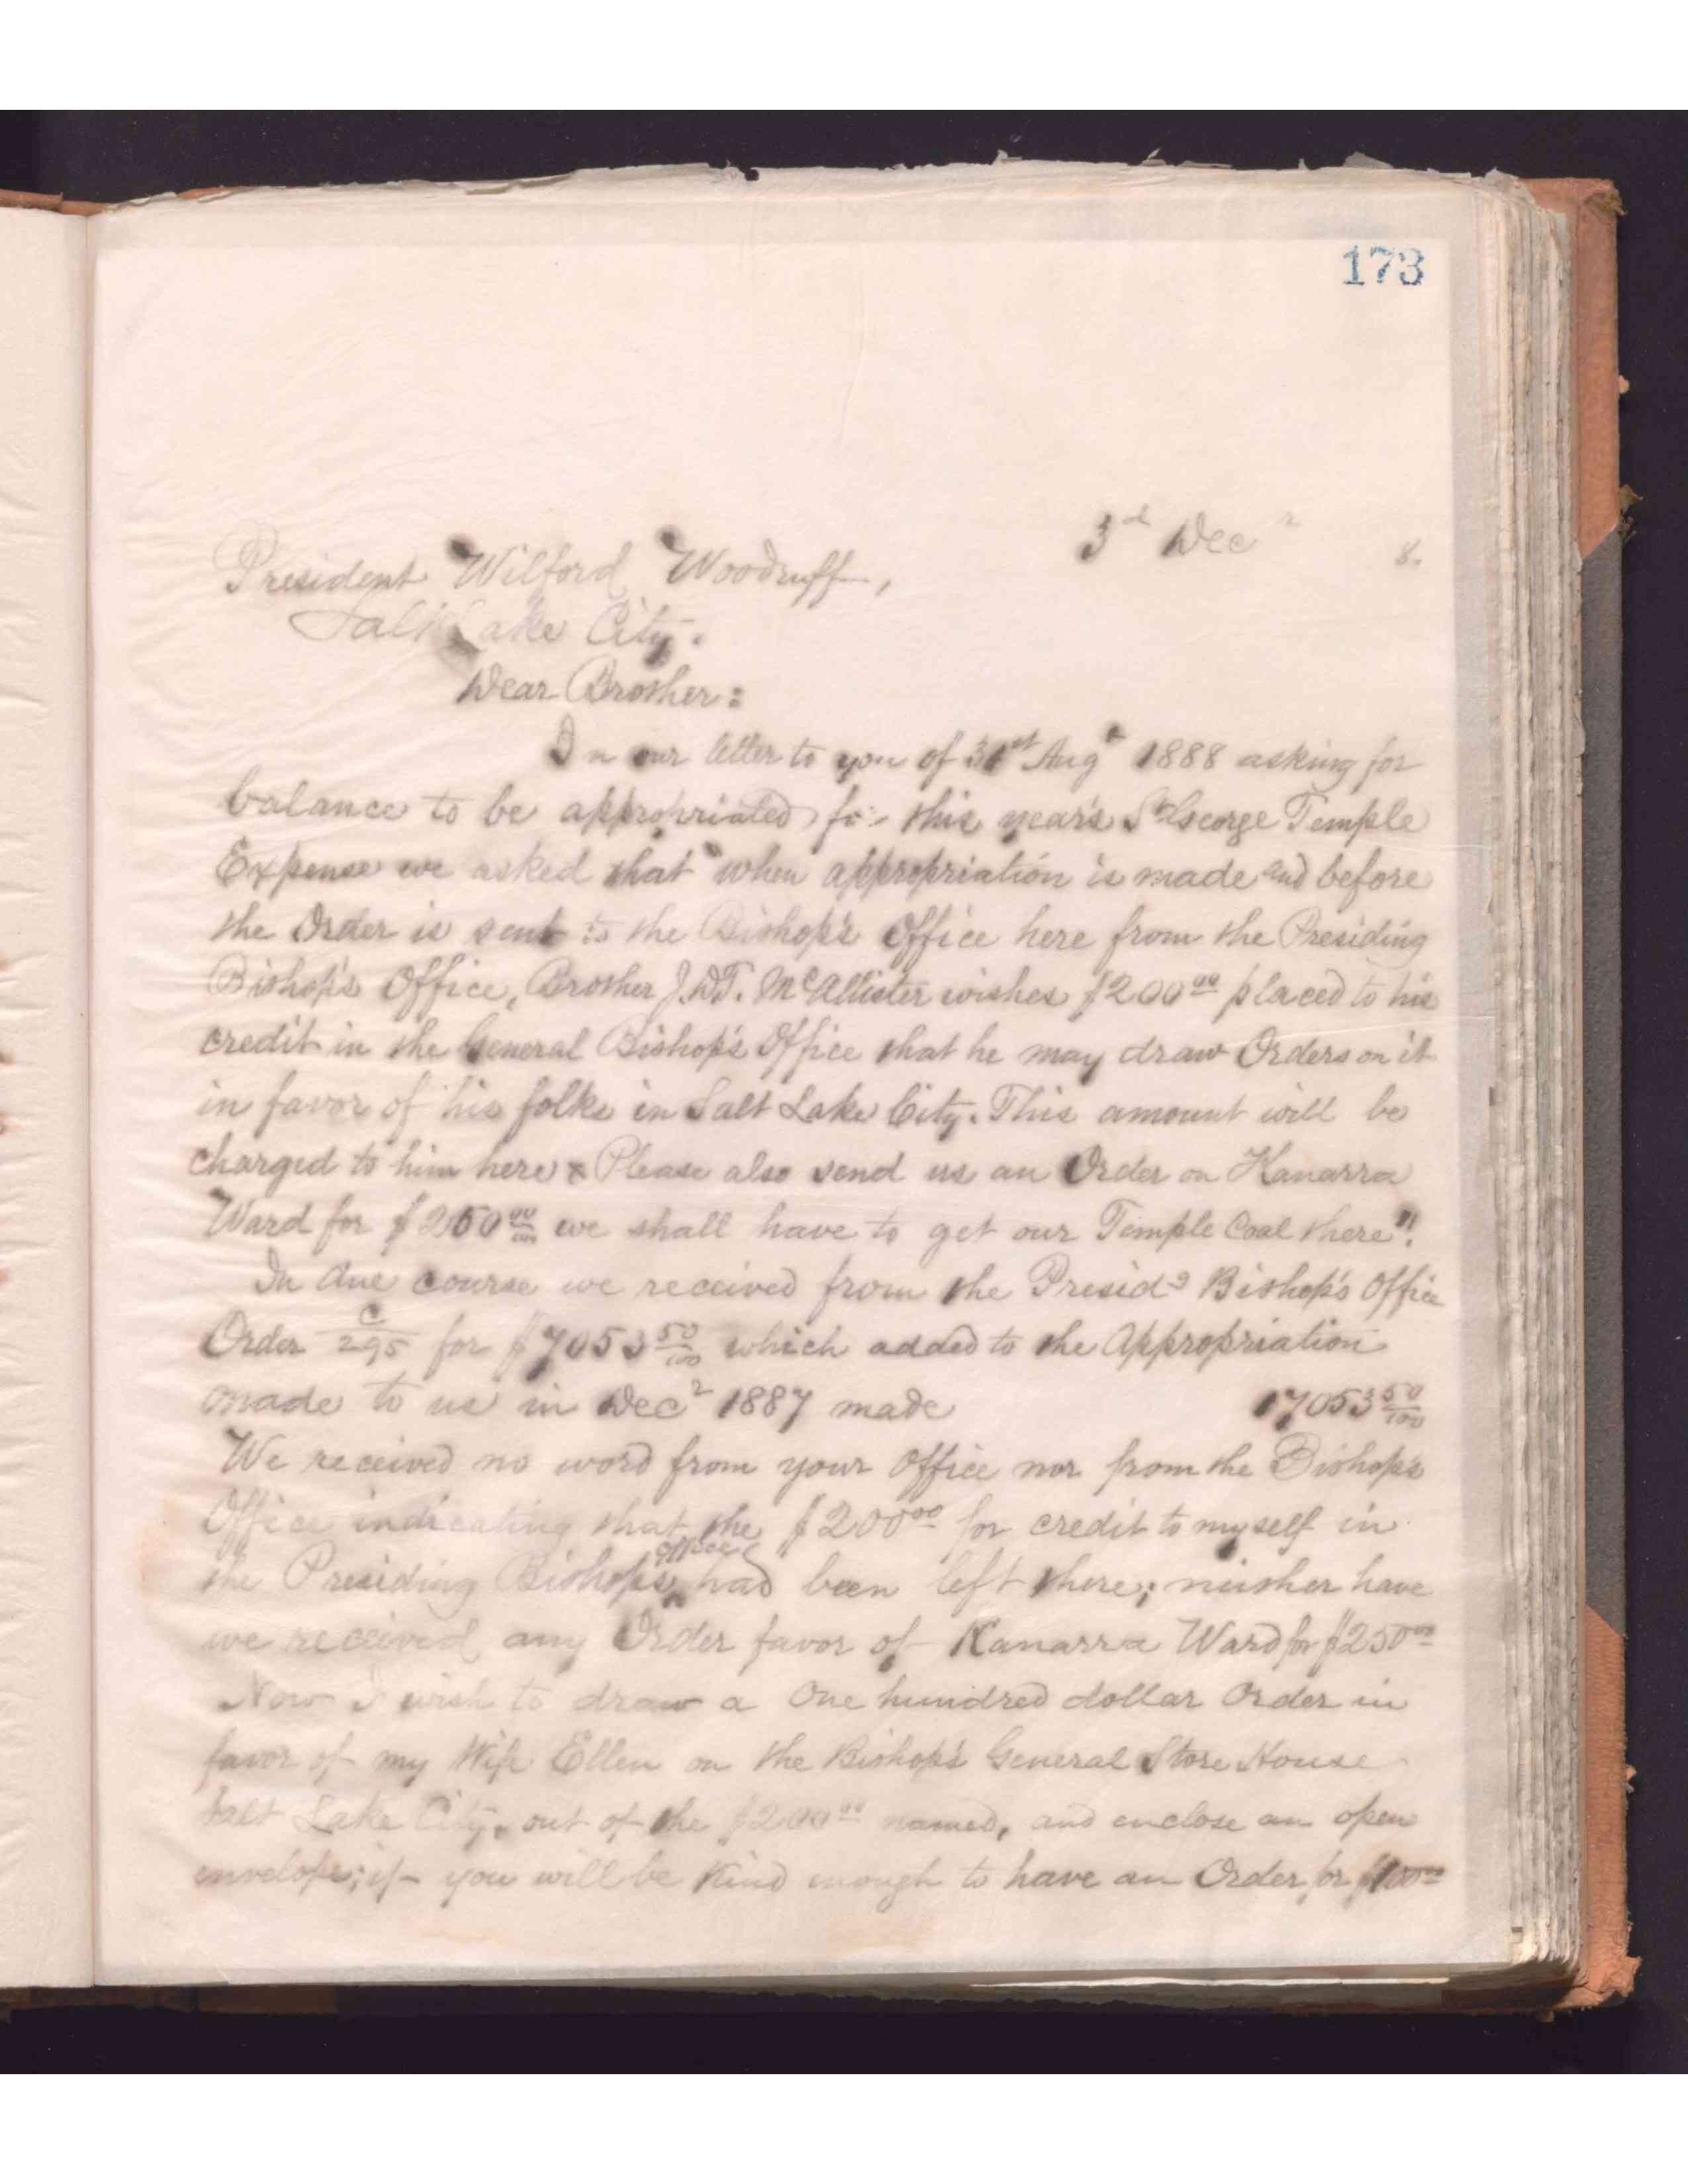 173
3d Decr 8.
President Wilford Woodruff,
Salt Lake City.
Dear Brother:
In our letter to you of 31st Augt 1888 asking for
balance to be appropriated for this year's St George Temple
Expense we asked that "when appropriation is made and before
the Order is sent to the Bishop's Office here from the Presiding
Bishop's Office, Brother J.D.T. McAllister wishes $200.00 placed to his
credit in the General Bishop's Office that he may draw Orders on it
in favor of his folks in Salt Lake City. This amount will be
charged to him here & Please also send us an Order on Kanarra
Ward for $250 00/100 we shall have to get our Temple Coal there".
In due course we received from the Presidg Bishop's Office
Order C/295 for $7053 50/100 which added to the Appropriation
made to us in Decr 1887 made 17053 50/100
We received no word from your Office nor from the Bishop's
Office indicating that the $200.00 for credit to myself in
the Presiding Bishop's Office had been left there; neither have
we received any Order favor of Kanarra Ward for $250.00
Now I wish to draw a One hundred dollar Order in
favor of my Wife Ellen on the Bishop's General Store House
Salt Lake City, out of the $200.00 named, and enclose an open
envelope; if you will be kind enough to have an Order for $100.00